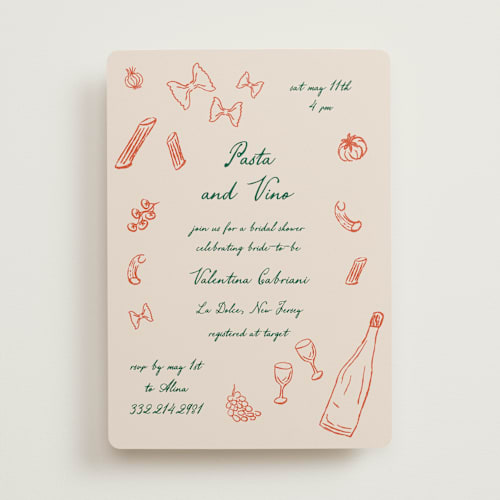 sat may 11th
4 pm
Pasta
and Vino
join us for a bridal shower
celebrating bride-to-be
Valentina Gabriani
La Dolce, New Jersey
registered at target
rsvp by may 1st
to Alina
332.214.2981